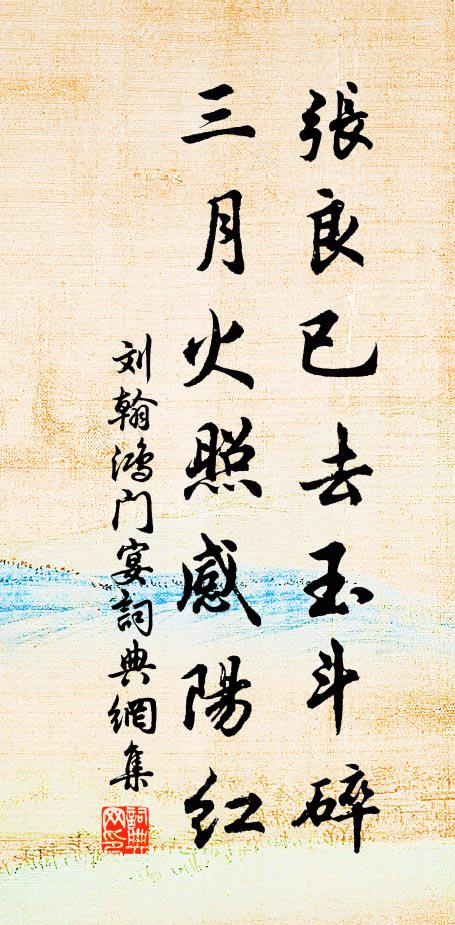 張良已去玉斗碎
三月火照感陽紅
刘翰鴻门宴詞典網集
詞典網印